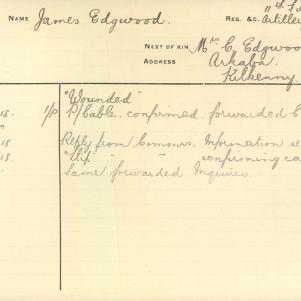 NAME James Edgwood. REG. &C. Artiller
NEXT OF KIN Mrs C. Edgwoo
ADDRESS Arkaba.
Kilkenny.
"Wounded"
18. 1/P P/Cable. confirmed. forwarded C
18 Reply from Commrs. Information se
18. "Slip" " " confirming ca
Same forwarded Inquiries.